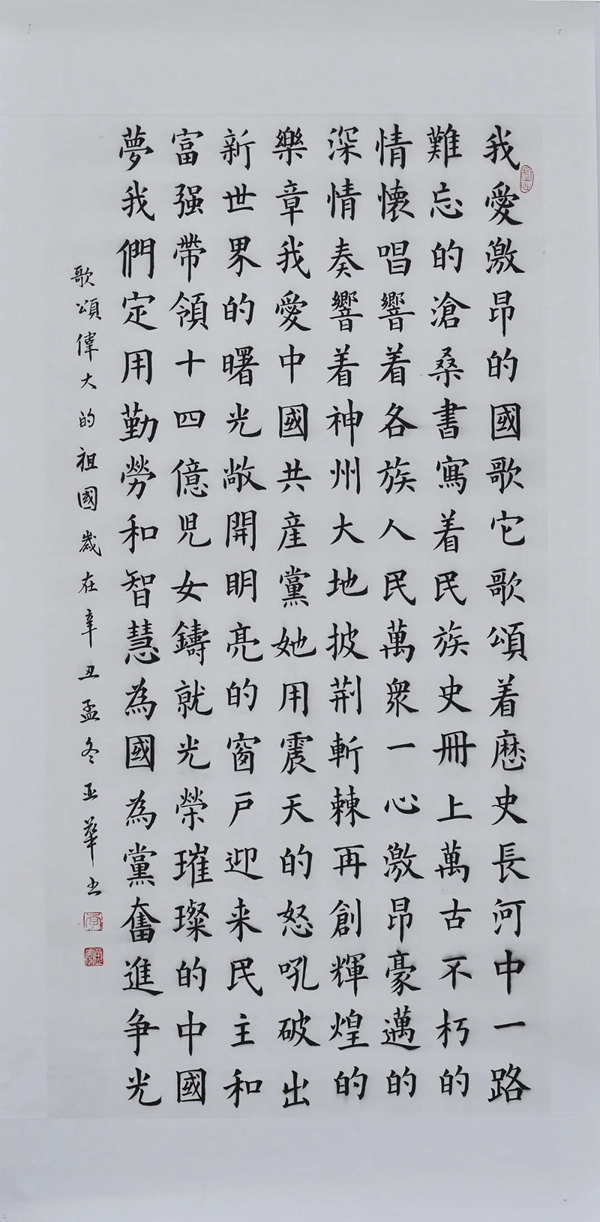 我愛激昂的國歌它歌頌着厯史長河中一路
難忘的滄桑書寫着民族史冊上萬古不朽的
情懷唱響着各族人民萬衆一心激昂豪邁的
深情奏響着神州大地披荆斬棘再創輝煌的
樂章我愛中國共産黨她用震天的怒吼破出
新世界的曙光敞開明亮的窗户迎来民主和
富强帶領十四億兒女鑄就光榮璀璨的中國
夢我們定用勤勞和智慧為國為黨奮進争光
歌頌偉大的祖國歲在辛丑孟冬亞華书